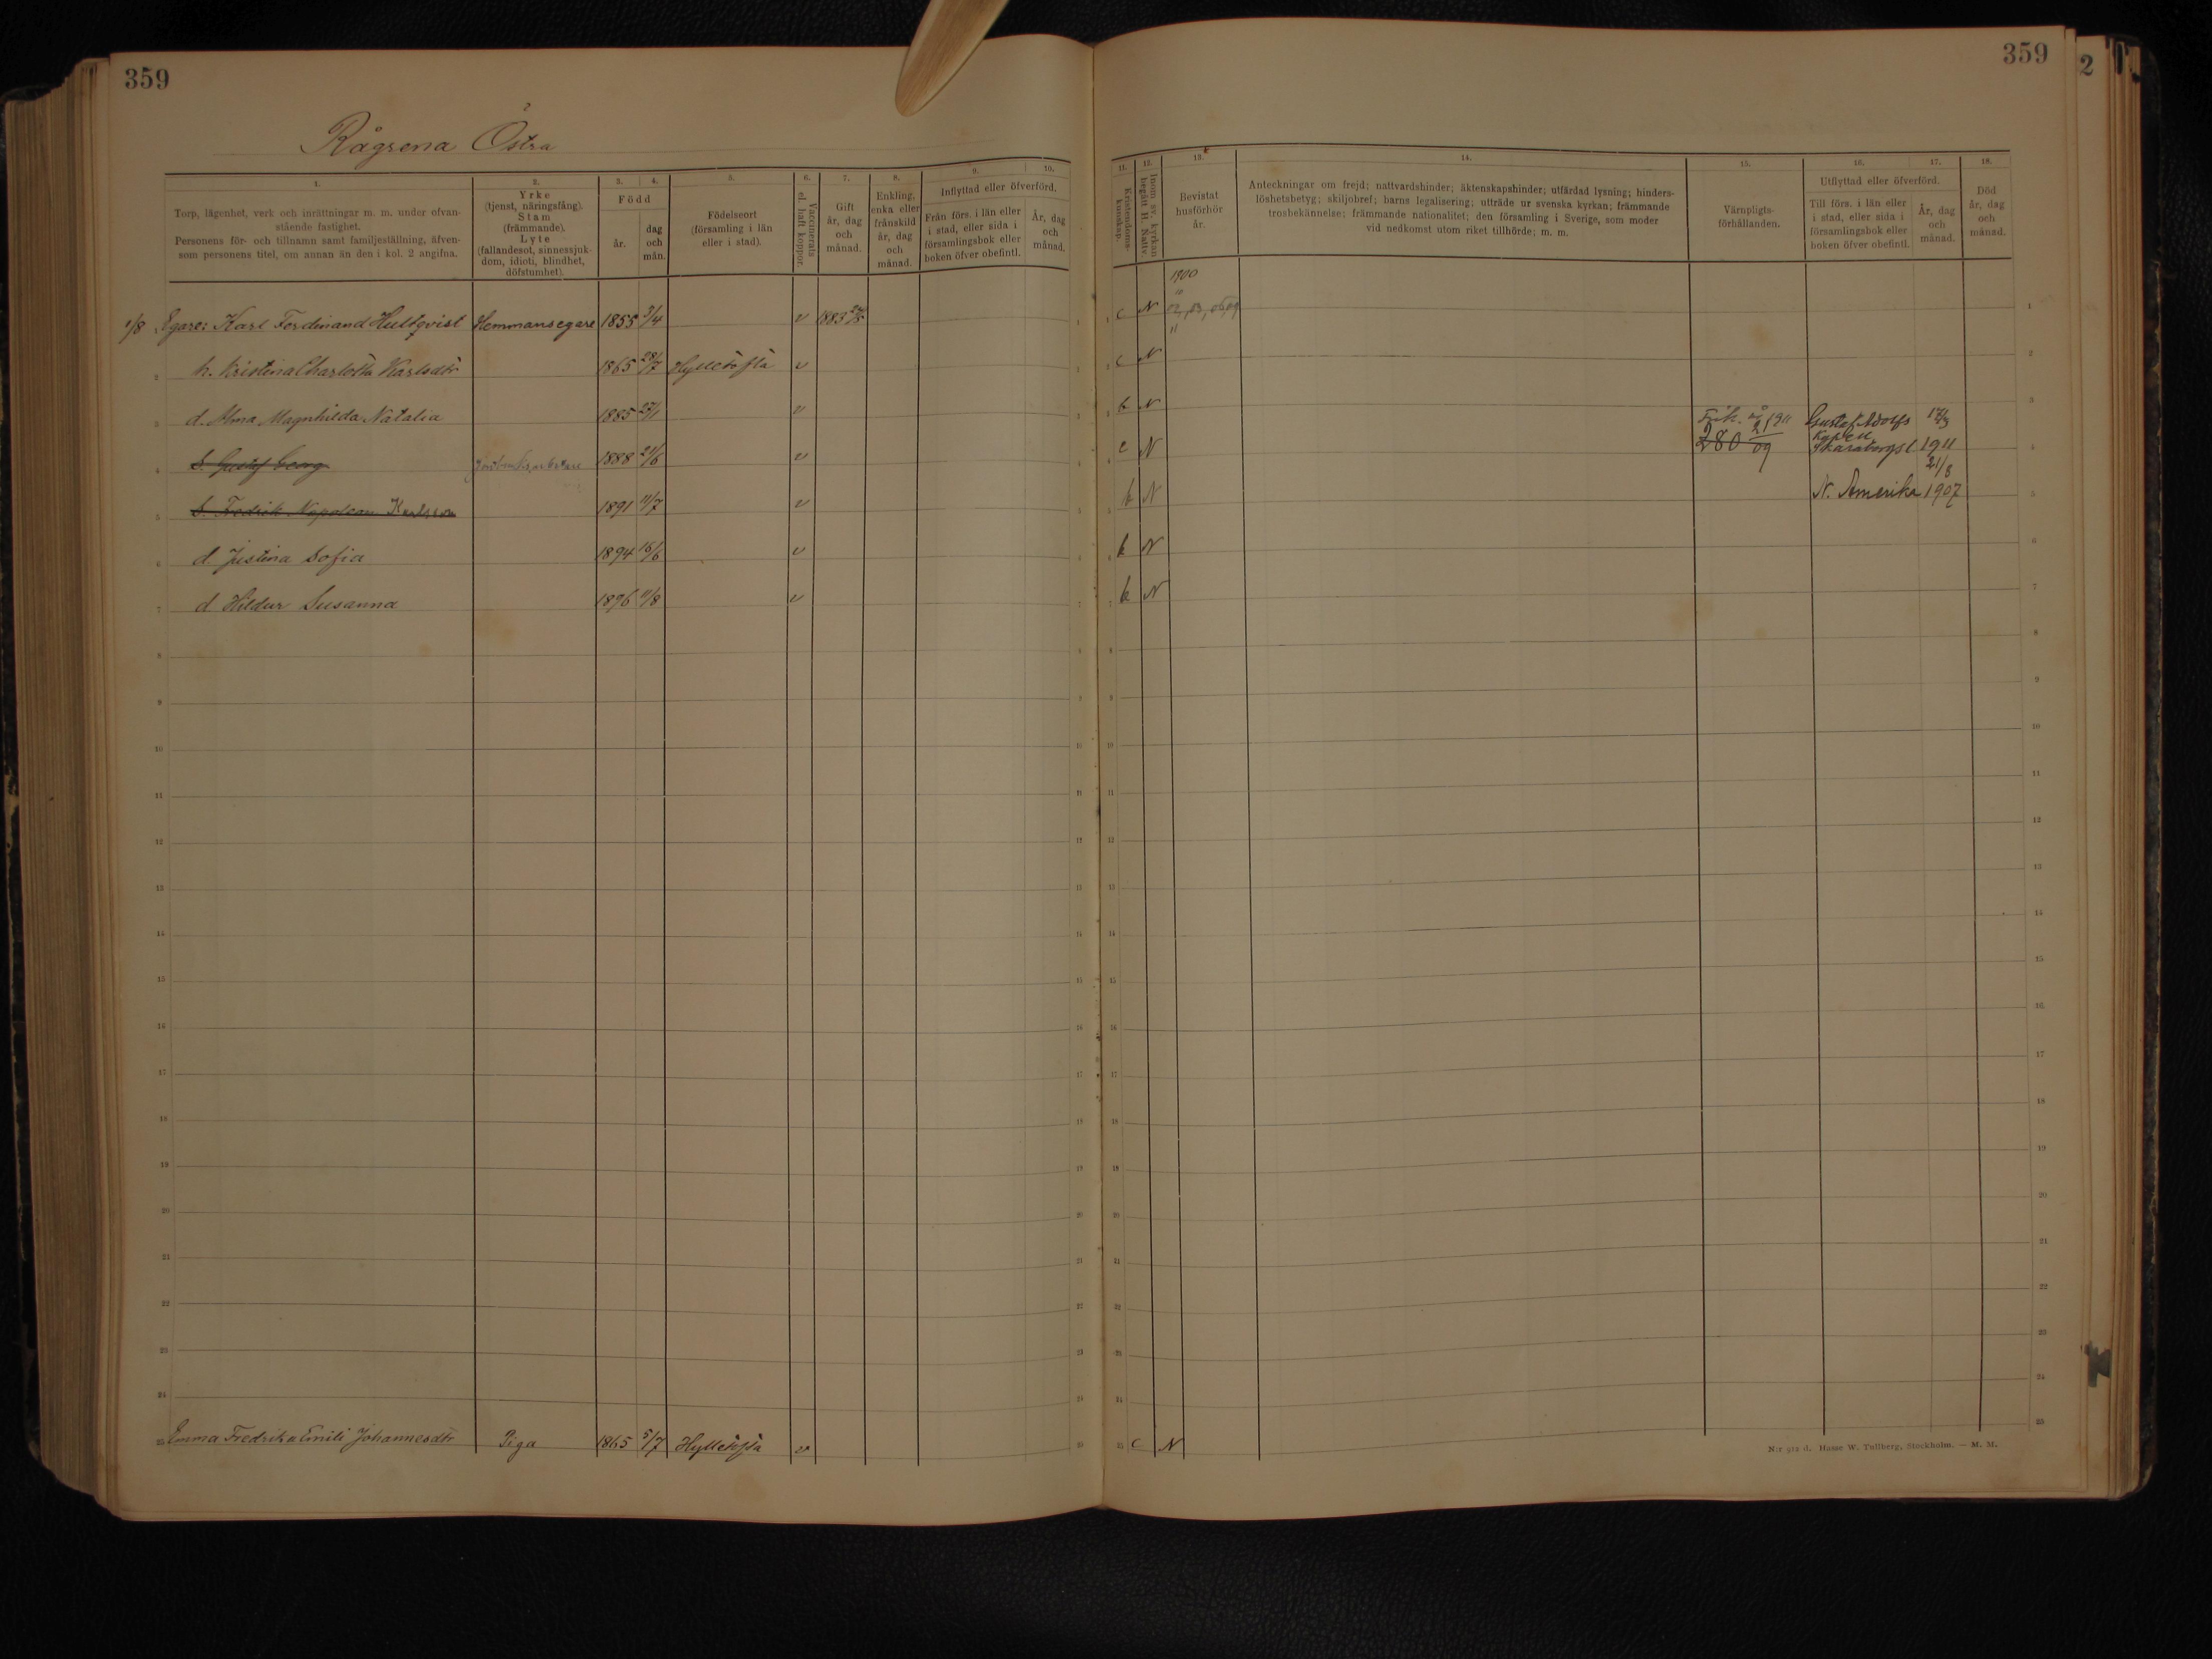 359
Rågsena Östra
1. 2. 3. 4. 5. 6. 7. 8. 9. 10.
Torp, lägenhet, verk och inrättningar m. m. under ofvan-
stående fastighet.
Personens för- och tillnamn samt familjeställning, äfven-
som personens titel, om annan än den i kol. 2 angifna.
Yrke
(tjenst, näringsfång).
Stam
(främmande).
Lyte
(fallandesot, sinnessjuk-
dom, idioti, blindhet,
döfstumhet).
Född
år.
dag
och
mån.
Födelseort
(församling i län
eller i stad).
Vaccinerats
el. haft koppor.
Gift
år, dag
och
månad.
Enkling,
enka eller
frånskild
år, dag
och
månad.
Inflyttad eller öfverförd.
Från förs. i län eller
i stad, eller sida i
församlingsbok eller
boken öfver obefintl.
År, dag
och
månad.
1/8 Egare: Karl Ferdinand Hultqvist Hemmansegare 1855 3/4 v 1883 24/3
2 h. Kristina Charlotta Karlsdtr 1865 28/7 Hylletofta v
3 d. Alma Magnhilda Natalia 1885 27/1 v
4 S. Gustaf Georg 1888 21/6 v
5 S. Fredrik Napoleon Karlsson 1891 11/7 v
6 d. Justina Sofia 1894 15/6 v
7 d Hildur Susanna 1896 11/8 v
8
9
10
11
12
13
14
15
16
17
18
19
20
21
22
23
24
25 Emma Fredrika Emili Johannesdtr Piga 1865 5/7 Hylletofta v
359
11. 12. 13. 14. 15. 16. 17. 18.
Kristendoms-
kunskap.
Inom sv. kyrkan
begått H. Nattv.
Bevistat
husförhör
år.
Anteckningar om frejd; nattvardshinder; äktenskapshinder; utfärdad lysning; hinders-
löshetsbetyg; skiljobref; barns legalisering; utträde ur svenska kyrkan; främmande
trosbekännelse; främmande nationalitet; den församling i Sverige, som moder
vid nedkomst utom riket tillhörde; m. m.
Värnpligts-
förhållanden.
Utflyttad eller öfverförd.
Till förs. i län eller
i stad, eller sida i
församlingsbok eller
boken öfver obefintl.
År, dag
och
månad.
Död
år, dag
och
månad.
1900
1 c N 02, 03, 05, 09 1
11
2 c N 2
3 b N 3
Gustaf Adolfs 17/3
4 c N 280 21/09 Skaraborgs l 1911 4
21/8
5 b N N. Amerika 1907 5
6 b N 6
7 b N 7
8
9
10
11
12
13
14
15
16
17
18
19
20
21
22
23
24
25 c N 25
N:r 912 d. Hasse W. Tullberg, Stockholm. — M. M.
2